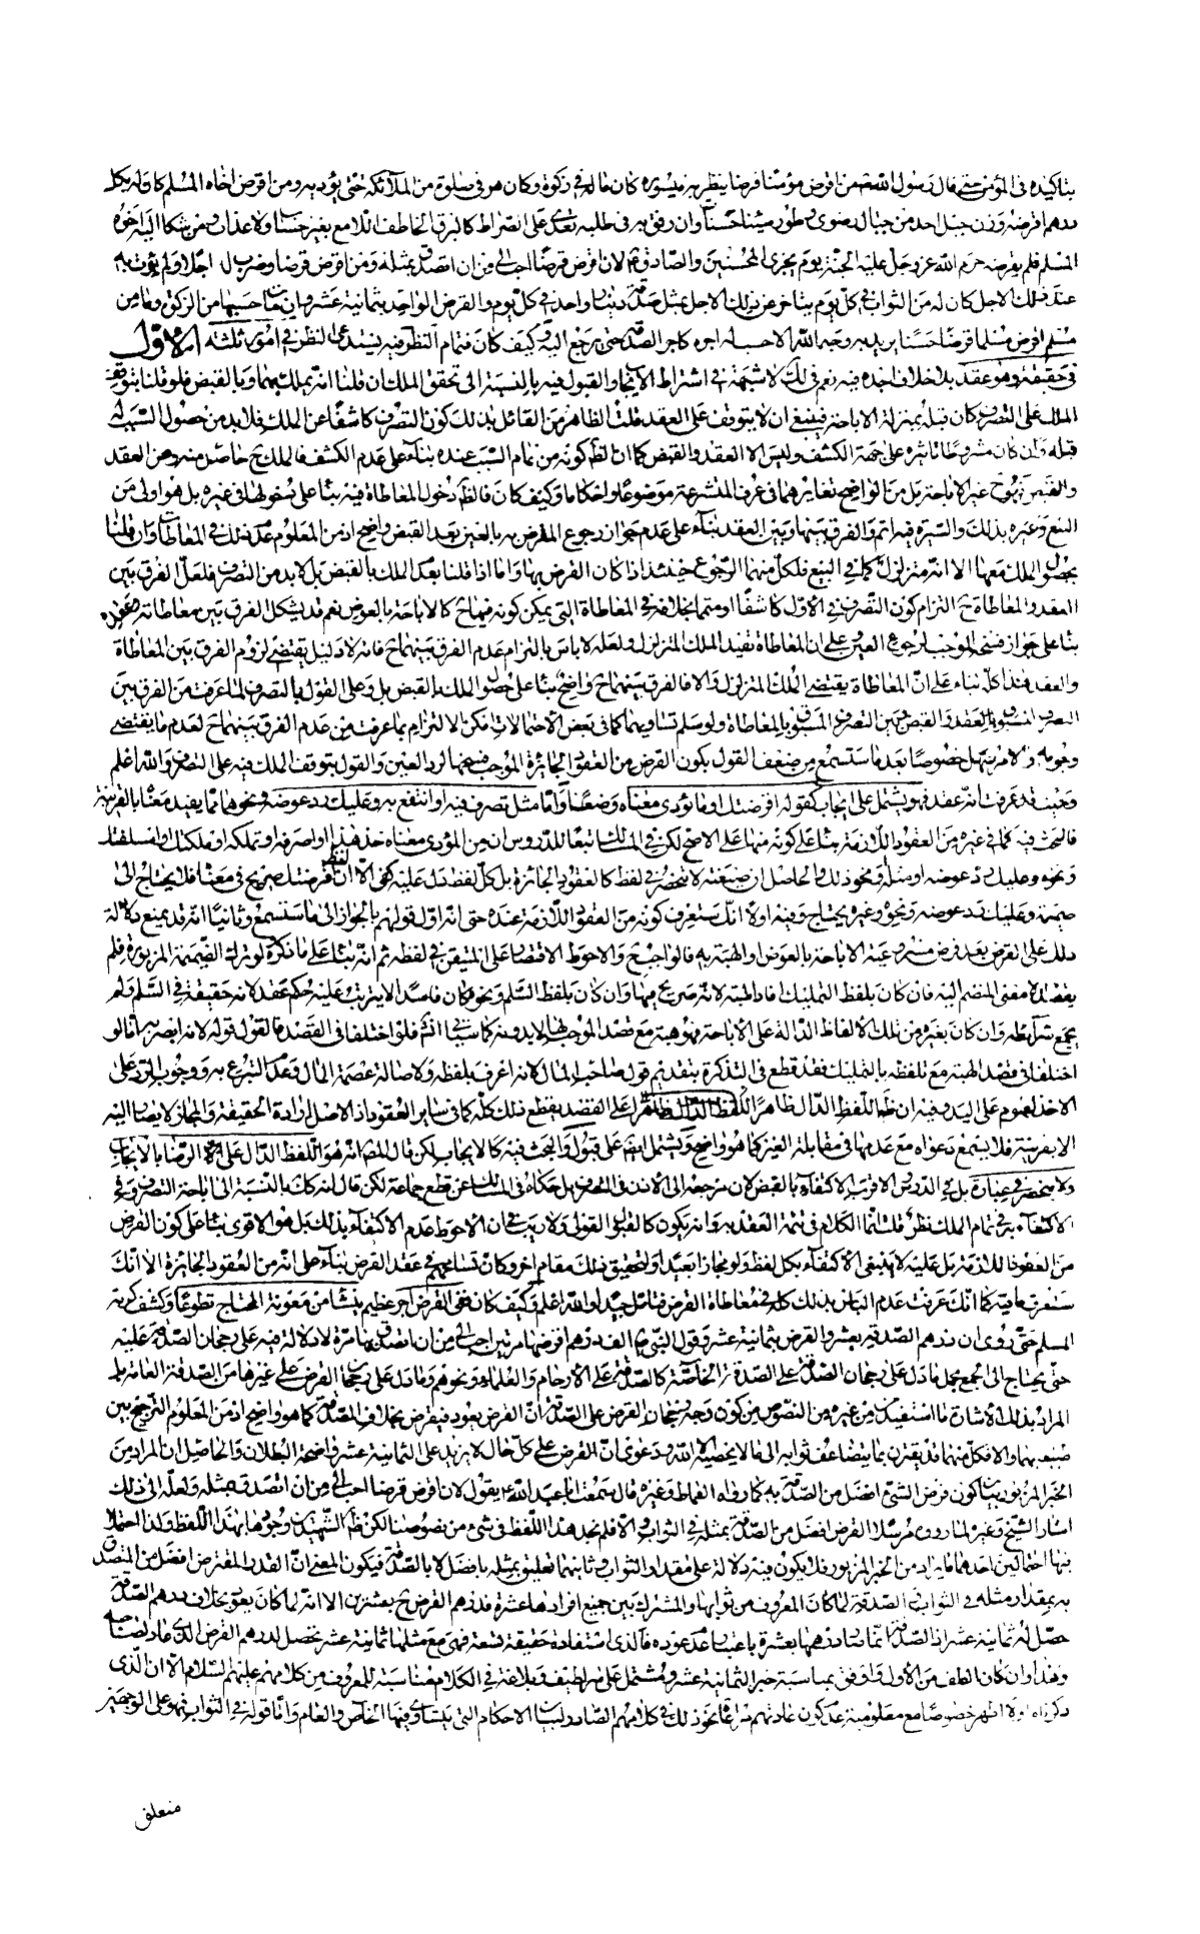 بتاكيده فى المؤمن حتى قال رسول الله من اقرض مؤمنا قرضا ينظر به ميسوره كان ماله فى زكوة وكان هو فى صلوة من الملائكة حتى يؤديه ومن اقرض اخاه المسلم كان له بكل
درهم اقرضه وزن جبل احد من جبال رضوى وطور سيناء حسنات وان رفق به فى طلبه تعدى على الصراط كالبرق الخاطف اللامع بغير حساب ولا عذاب ومن شكا اليه اخوه
المسلم فلم يقرضه حرم الله عز وجل عليه الجنة يوم يجزى المحسنين والصادق لان اقرض قرضا احب الى من ان اتصدق بمثله ومن اقرض قرضا وضرب له اجلا ولم يؤت به
عند ذلك الاجل كان له من الثواب فى كل يوم يتاخر عن ذلك الاجل بمثل صدقة دينار واحد فى كل يوم والقرض الواحد بثمانية عشر وان مات حسبها من الزكوة وما من
مسلم اقرض مسلما قرضا حسنا يريد به وجه الله الا حسب له اجره كاجر الصدقة حتى يرجع اليه وكيف كان فتمام النظر فيه يستدعى النظر فى امور ثلثة الاول
فى حقيقته وهو عقد بلا خلاف اجده فيه نعم فى ذلك لا شبهة فى اشتراط الايجاب والقبول فيه بالنسبة الى تحقق الملك ان قلنا انه يملك بهما وبالقبض فلو قلنا بتوقف
الملك على التصرف كان قبله بمنزلة الاباحة فينبغى ان لا يتوقف على العقد قلت الظاهر من القائل بذلك كون التصرف كاشفا عن الملك فلابد من حصول السبب له
قبله وان كان مشروطا تاثيره على جهة الكشف وليس الا العقد والقبض كما ان الظ كونه من تمام السبب عنده بناء على عدم الكشف فالملك ح حاصل منه ومن العقد
والقبض ح غير الاباحة بل من الواضح تغايرهما فى عرف المتشرعة موضوعا واحكاما وكيف كان فالظ دخول المعاطاة فيه بناء على دخولها فى غيره بل هو اولى من
البيع وغيره بذلك والسيرة فيه اتم والفرق بينها وبين العقد بناء على عدم جواز رجوع المقرض به بالعين بعد القبض واضح اذ من المعلوم عدم ذلك فى المعاطاة وان قلنا
بحصول الملك معها الا انه متزلزل كما فى البيع فلكل منهما الرجوع حينئذ اذا كان القرض بها واما اذا قلنا بعدم الملك بالقبض بل لابد من التصرف فلعل الفرق بين
العقد والمعاطاة ح التزام كون التصرف فى الاول كاشفا او متمما بخلافه فى المعاطاة التى يمكن كونه فيها ح كالاباحة بالعوض نعم قد يشكل الفرق بين معاطاته وعقده
بناء على جواز فسخه الموجب لرجوع العين على ان المعاطاة تفيد الملك المتزلزل ولعله لا باس بالتزام عدم الفرق بينهما ح فانه لا دليل يقتضى لزوم الفرق بين المعاطاة
والعقد هذا كله بناء على ان المعاطاة يقتضى الملك المتزلزل والا فالفرق بينهما ح واضح بناء على حصول الملك بالقبض بل وعلى القول بالتصرف لما عرفت من الفرق بين
التصرف المسبوق بالعقد والقبض وبين التصرف المسبوق بالمعاطاة ولو سلم تساويهما كما فى بعض الاحتمالات امكن الالتزام بما عرفت من عدم الفرق بينهما ح لعدم ما يقتضى
وجوبه والامر سهل خصوصا بعد ما ستسمع من ضعف القول بكون القرض من العقود الجائزة الموجب فسخها لرد العين والقول بتوقف الملك فيه على التصرف والله اعلم
وحيث قد عرفت انه عقد فهو يشتمل على ايجاب كقوله اقرضتك او ما يؤدى معناه وضعا واما مثل تصرف فيه او انتفع به وعليك رد عوضه ونحوهما مما يفيد معناه بالقرينة
فالبحث فيه كما فى غيره من العقود اللازمة بناء على كونه منها على الاصح لكن فى المسالك تبعا للدروس ان من المؤدى معناه خذ هذا او اصرفه او تملكه او ملكتك او اسلفتك
ونحوه وعليك رد عوضه او مثله ونحو ذلك والحاصل ان صيغته لا تنحصر فى لفظ كالعقود الجائزة بل كل لفظ دل عليه كفى الا ان لفظ اقرضتك صريح فى معناه فلا يحتاج الى
ضميمة وعليك رد عوضه ونحوه وغيره يحتاج وفيه اولا انك ستعرف كونه من العقود اللازمة عنده حتى انه اول قولهم بالجواز الى ما ستسمع وثانيا انه قد يمنع دلالة
ذلك على القرض بعد فرض مشروعية الاباحة بالعوض او الهبة به فالواجب ح والاحوط الاقتصار على المتيقن فى لفظه ثم انه بناء على ما ذكره لو ترك الضميمة المزبورة فلم
يفد الا معنى المنضم اليه فان كان بلفظ التمليك افاد الهبة لانه صريح فيها وان كان بلفظ السلم ونحوه كان فاسدا لا يترتب عليه حكم عقد لانه حقيقة فى السلم ولم
يجمع شرائطه وان كان بغيره من تلك الالفاظ الدالة على الاباحة فهو هبة مع قصد الموجب لها لا بدونه كما سياتى انش فلو اختلفا فى القصد فالقول قوله لانه ابصر به اما لو
اختلفا فى قصد الهبة مع تلفظه بالتمليك فقد قطع فى التذكرة بتقديم قول صاحب المال لانه اعرف بلفظه ولاصالة عصمة المال وعدم التبرع به ووجوب الرد على
الاخذ لعموم على اليد وفيه ان ظاهر اللفظ الدال ظاهرا على القصد يقطع ذلك كله كما فى ساير العقود اذ الاصل ارادة الحقيقة والمجاز لا يصار اليه
الا بقرينة فلا يسمع دعواه مع عدمها فى مقابلة الغير كما هو واضح ويشتمل ايض على قبول والبحث فيه كالايجاب لكن قال المصا انه هو اللفظ الدال على الرضا بالايجاب
ولا ينحصر فى عبارة بل فى الدروس الاقرب الاكتفاء بالقبض لان مرجعه الى الاذن فى التصرف بل حكاه فى المسالك عن قطع جماعة لكن قال انه كك بالنسبة الى اباحة التصرف وفى
الاكتفاء به فى تمام الملك نظر قلت انما الكلام فى تتمة العقد به وانه يكون كالقبول القولى ولا ريب فى ان الاحوط عدم الاكتفاء بذلك بل هو الاقوى بناء على كون القرض
من العقود اللازمة بل عليه لا ينبغى الاكتفاء بكل لفظ ولو مجازا بعيدا ولتحقيق ذلك مقام اخر وكان تسامحهم فى عقد القرض بناء على انه من العقود الجائزة الا انك
ستعرف ما فيه كما انك عرفت عدم الباس بذلك كله فى معاطاة القرض فتامل جيدا والله اعلم وكيف كان ففى القرض اجر عظيم ينشا من معونة المحتاج تطوعا وكشف كربة
المسلم حتى روى ان درهم الصدقة بعشر والقرض بثمانية عشر وقول النبى الف درهم اقرضها مرتين احب الى من ان اتصدق بها مرة لا دلالة فيه على رجحان الصدقة عليه
حتى يحتاج الى الجمع بحمل ما دل على رجحان الصدقة على الصدقة الخاصة كالصدقة على الارحام والعلماء ونحوهم وما دل على رجحان القرض على غيرها من الصدقة العامة بل
المراد بذلك الاشارة ما استفيد من غيره من النصوص من كون وجه رجحان القرض على الصدقة ان القرض يعود فيقرض بخلاف الصدقة كما هو واضح اذ من المعلوم الترجيح بين
طبيعتيهما والا فكل منهما قد يقترن بما يتضاعف ثوابه الى ما لا يحصيه الا الله ودعوى ان القرض على كل حال لا يزيد على الثمانية عشر واضحة البطلان والحاصل ان المراد من
الخبر المزبور بيان كون قرض الشئ افضل من الصدقة به كما رواه الغماط وغيره قال سمعت ابا عبد الله يقول لان اقرض قرضا احب الى من ان اتصدق بمثله ولعله الى ذلك
اشار الشيخ وغيره لما روى مرسلا القرض افضل من الصدقة بمثله فى الثواب والا فلم نجد هذا اللفظ فى شئ من نصوصنا لكن ظ الشهيد وجودها بهذا اللفظ ولذا احتمل
فيها احتمالين احدهما ما يراد من الخبر المزبور فلا يكون فيه دلالة على مقدار الثواب وثانيهما تعليق بمثله بافضل لا بالصدقة فيكون المعنى ان القدر المقترض افضل من المتصدق
به بمقدار مثله فى الثواب والصدقة لما كان المعروف من ثوابها والمشترك بين جميع افرادها عشرة فدرهم القرض ح بعشرين الا انه لما كان يعود بخلاف درهم الصدقة
حصل له ثمانية عشر اذ الصدقة انما صار درهما بعشرة باعتبار عدم عوده فالذى استفاده حقيقة تسعة فهى مع مثلها ثمانية عشر تحصل لدرهم القرض الذى عاد لصاحبه
وهذا وان كان الطف من الاول واوفق بمناسبة خبر الثمانية عشر ومشتمل على سر لطيف وبلاغة فى الكلام مناسبة للمعروف من كلامهم عليهم السلام الا ان الذى
ذكرناه اولا اظهر خصوصا مع معلومية عدم كون عادتهم مراعاة نحو ذلك فى كلامهم الصادر لبيان الاحكام التى يتساوى فيها الخاص والعام واما قوله فى الثواب فهو على الوجهين
متعلق